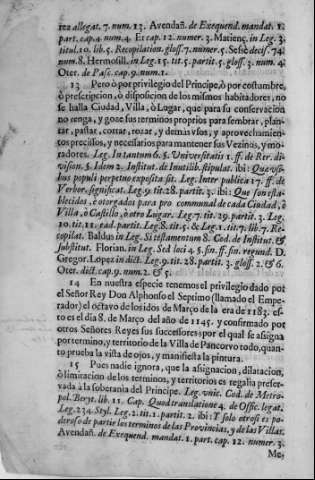 rez allegat. 7. num. 13. Avendañ. de Exequend. mandat. 1.
part. cap. 4. num. 4. Et cap. 12. numer. 3. Matienç. in Leg. 3.
titul. 10. lib. 5. Recopilation. gloss. 7. numer. 5. Sesse decis. 74.
num. 8. Hermosill. in Leg. 15. tit. 5. partit. 5. gloss. 3. num. 4.
Oter. de Pasc. cap. 9. num. 1.
13 Pero ò por privilegio del Principe, ò por costumbre,
ò prescripcion, ò disposicion de los mismos habitadores, no
se halla Ciudad, Villa, ò Lugar, que para su conservacion
no tenga, y goze sus terminos proprios para sembrar, plan-
tar, pastar, cortar, rozar, y demàs usos, y aprovechamien-
tos precissos, y necessarios para mantener sus Vezinos, y mo-
radores. Leg. In tantum 6. §. Universitatis 1. ff. de Rer. di-
vison. §. Idem 2. Institut. de Inutilib. stipulat. ibi: Que usi-
bus populi perpetuo exposita sit. Leg. Inter publica 17. ff. de
Verbor. significat. Leg. 9. tit. 28. partit. 3. ibi: Que son esta-
blecidos, è otorgados para pro communal de cada Ciudad, è
Villa, ò Castillo, è otro Lugar. Leg. 7. tit. 29. partit. 3. Leg.
10. tit. 11. ead. partit. Leg. 8. tit. 5. & Leg. 1. tit. 7. lib. 7. Re-
copilat. Baldus in Leg. Si testamentum 8. Cod. de Institut. &
substitut. Florian. in Leg. Sed loci 4. §. fin. ff. fin. regund. D.
Gregor. Lopez in dict. Leg. 9. tit. 28. partit. 3. gloss. 2. & 6.
Oter. dict. cap. 9. num. 2. & 5.
14 En nuestra especie tenemos el privilegio dado por
el Señor Rey Don Alphonso el Septimo (llamado el Empe-
rador) el octavo de los idos de Março de la era de 1183. es-
to es el dia 8. de Março del año de 1145. y confirmado por
otros Señores Reyes sus successores: por el qual se assigna
por termino, y territorio de la Villa de Pancorvo todo, quan-
to prueba la vista de ojos, y manifiesta la pintura.
15 Pues nadie ignora, que la assignacion, dilatacion,
ò limitacion de los terminos, y territorios es regalia preser-
vada à la soberanìa del Principe. Leg. unic. Cod. de Metro-
pol. Beryt. lib. 11. Cap. Quod translatione 4. de Offic. legat.
Leg. 234. Styl. Leg. 2. tit. 1. partit. 2. ibi: Y solo otrosi es po-
deroso de partir los terminos de las Provincias, y de las Villas.
Avendañ. de Exequend. mandat. 1. part. cap. 12. numer. 3.
Me;